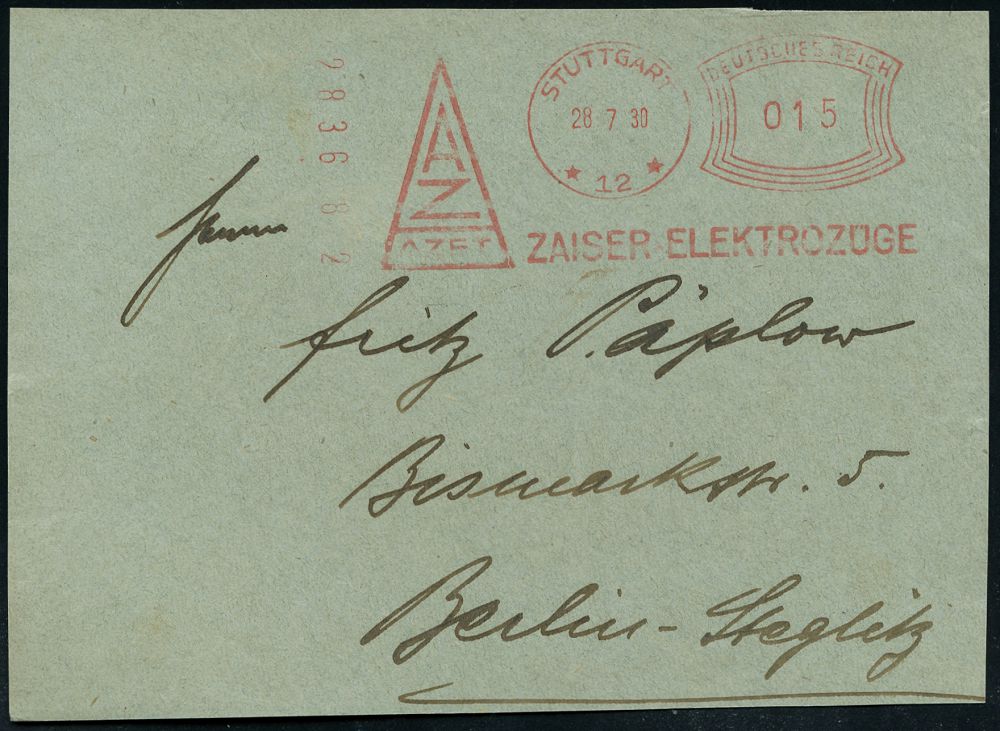 28368 2
AZ
AZET
STUTTGART
28 7 30
12
DEUTSCHES REICH
015
ZAISER ELEKTROZÜGE
Herrn
Fritz Päplow
Bismarkstr. 5.
Berlin-Steglitz